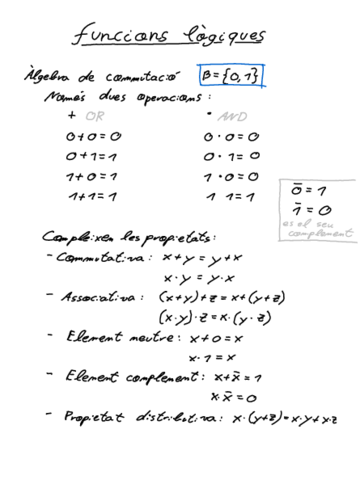 funcions lògiques
Àlgebra de commutació B={0,1}
Només dues operacions:
+ OR · AND
0+0=0 0·0=0
0+1=1 0·1=0
1+0=1 1·0=0
1+1=1 1 1=1
0̄=1
1̄=0
es el seu
complement
Compleixen les propietats:
- Commutativa: x+y=y+x
x·y=y·x
- Associativa: (x+y)+z=x+(y+z)
(x·y)·z=x·(y·z)
- Element neutre: x+0=x
x·1=x
- Element complement: x+x̄=1
x·x̄=0
- Propietat distributiva: x·(y+z)=x·y+x·z